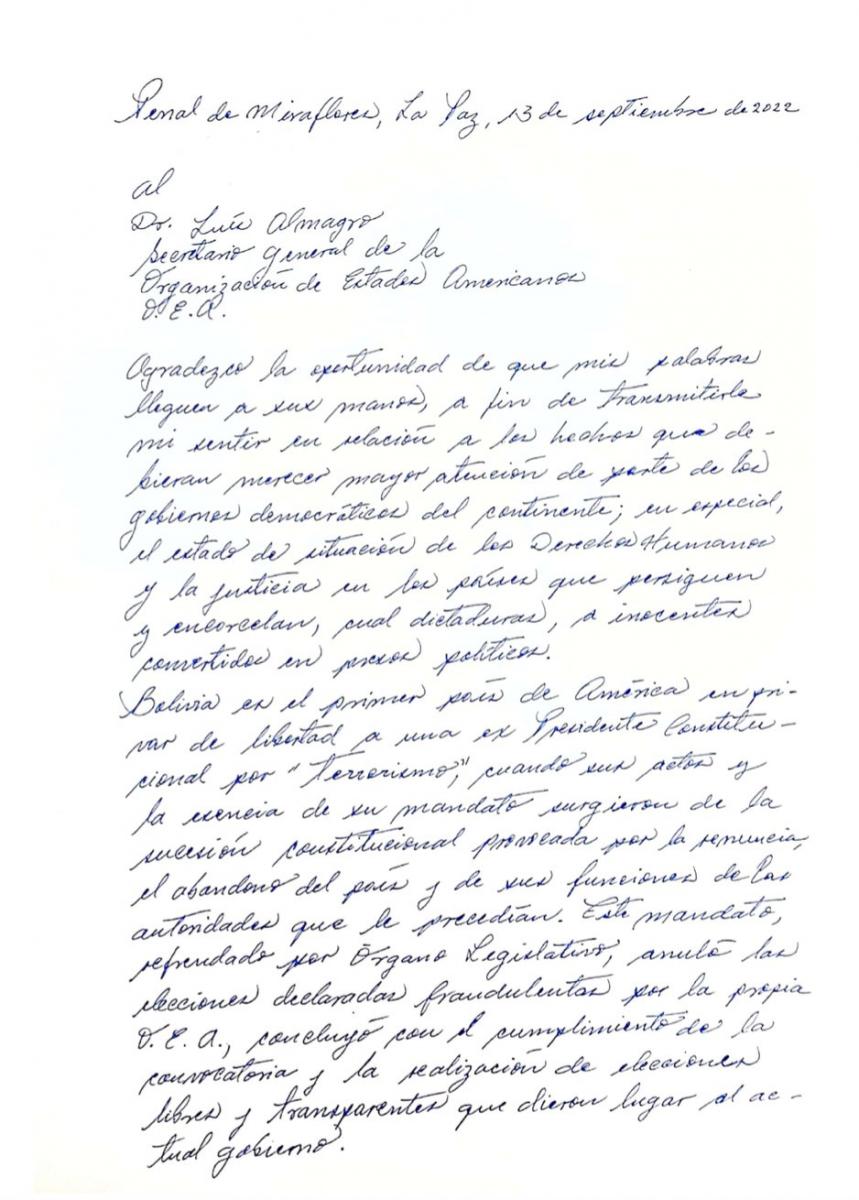 Penal de Miraflores, La Paz, 13 de septiembre de 2022
al
Dr. Luis Almagro
Secretario General de la
Organización de Estados Americanos
O.E.A.
Agradezco la oportunidad de que mis palabras
lleguen a sus manos, a fin de transmitirle
mi sentir en relación a los hechos que de-
bieran merecer mayor atención de parte de los
gobiernos democráticos del continente; en especial,
el estado de situación de los Derechos Humanos
y la justicia en los países que persiguen
y encarcelan, cual dictaduras, a inocentes
convertidos en presos políticos.
Bolivia es el primer país de América en pri-
var de libertad a una ex Presidente Constitu-
cional por "Terrorismo", cuando sus actos y
la esencia de su mandato surgieron de la
sucesión constitucional provocada por la renuncia,
el abandono del país y de sus funciones de las
autoridades que le precedían. Este mandato,
refrendado por Órgano Legislativo, anuló las
elecciones declaradas fraudulentas por la propia
O.E.A., concluyó con el cumplimiento de la
convocatoria y la realización de elecciones
libres y transparentes que dieron lugar al ac-
tual gobierno.